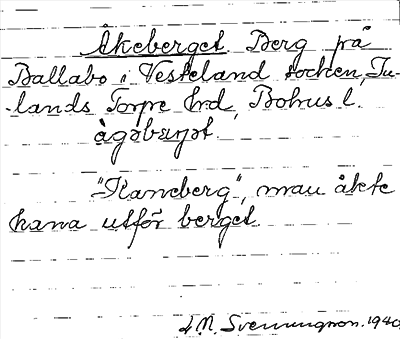 Åkeberget. Berg på
Ballabo i Vesteland socken, In-
-lands Torpe hd, Bohus l.
àgəbærjət.
"Kaneberg", man åkte
kana utför berget.
S.M. Svenungson. 1940